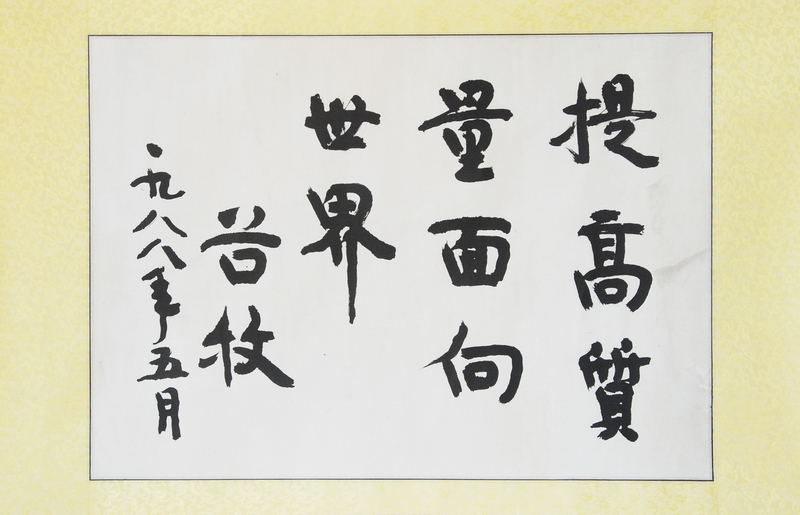 提高質
量面向
世界
谷牧
一九八八年五月